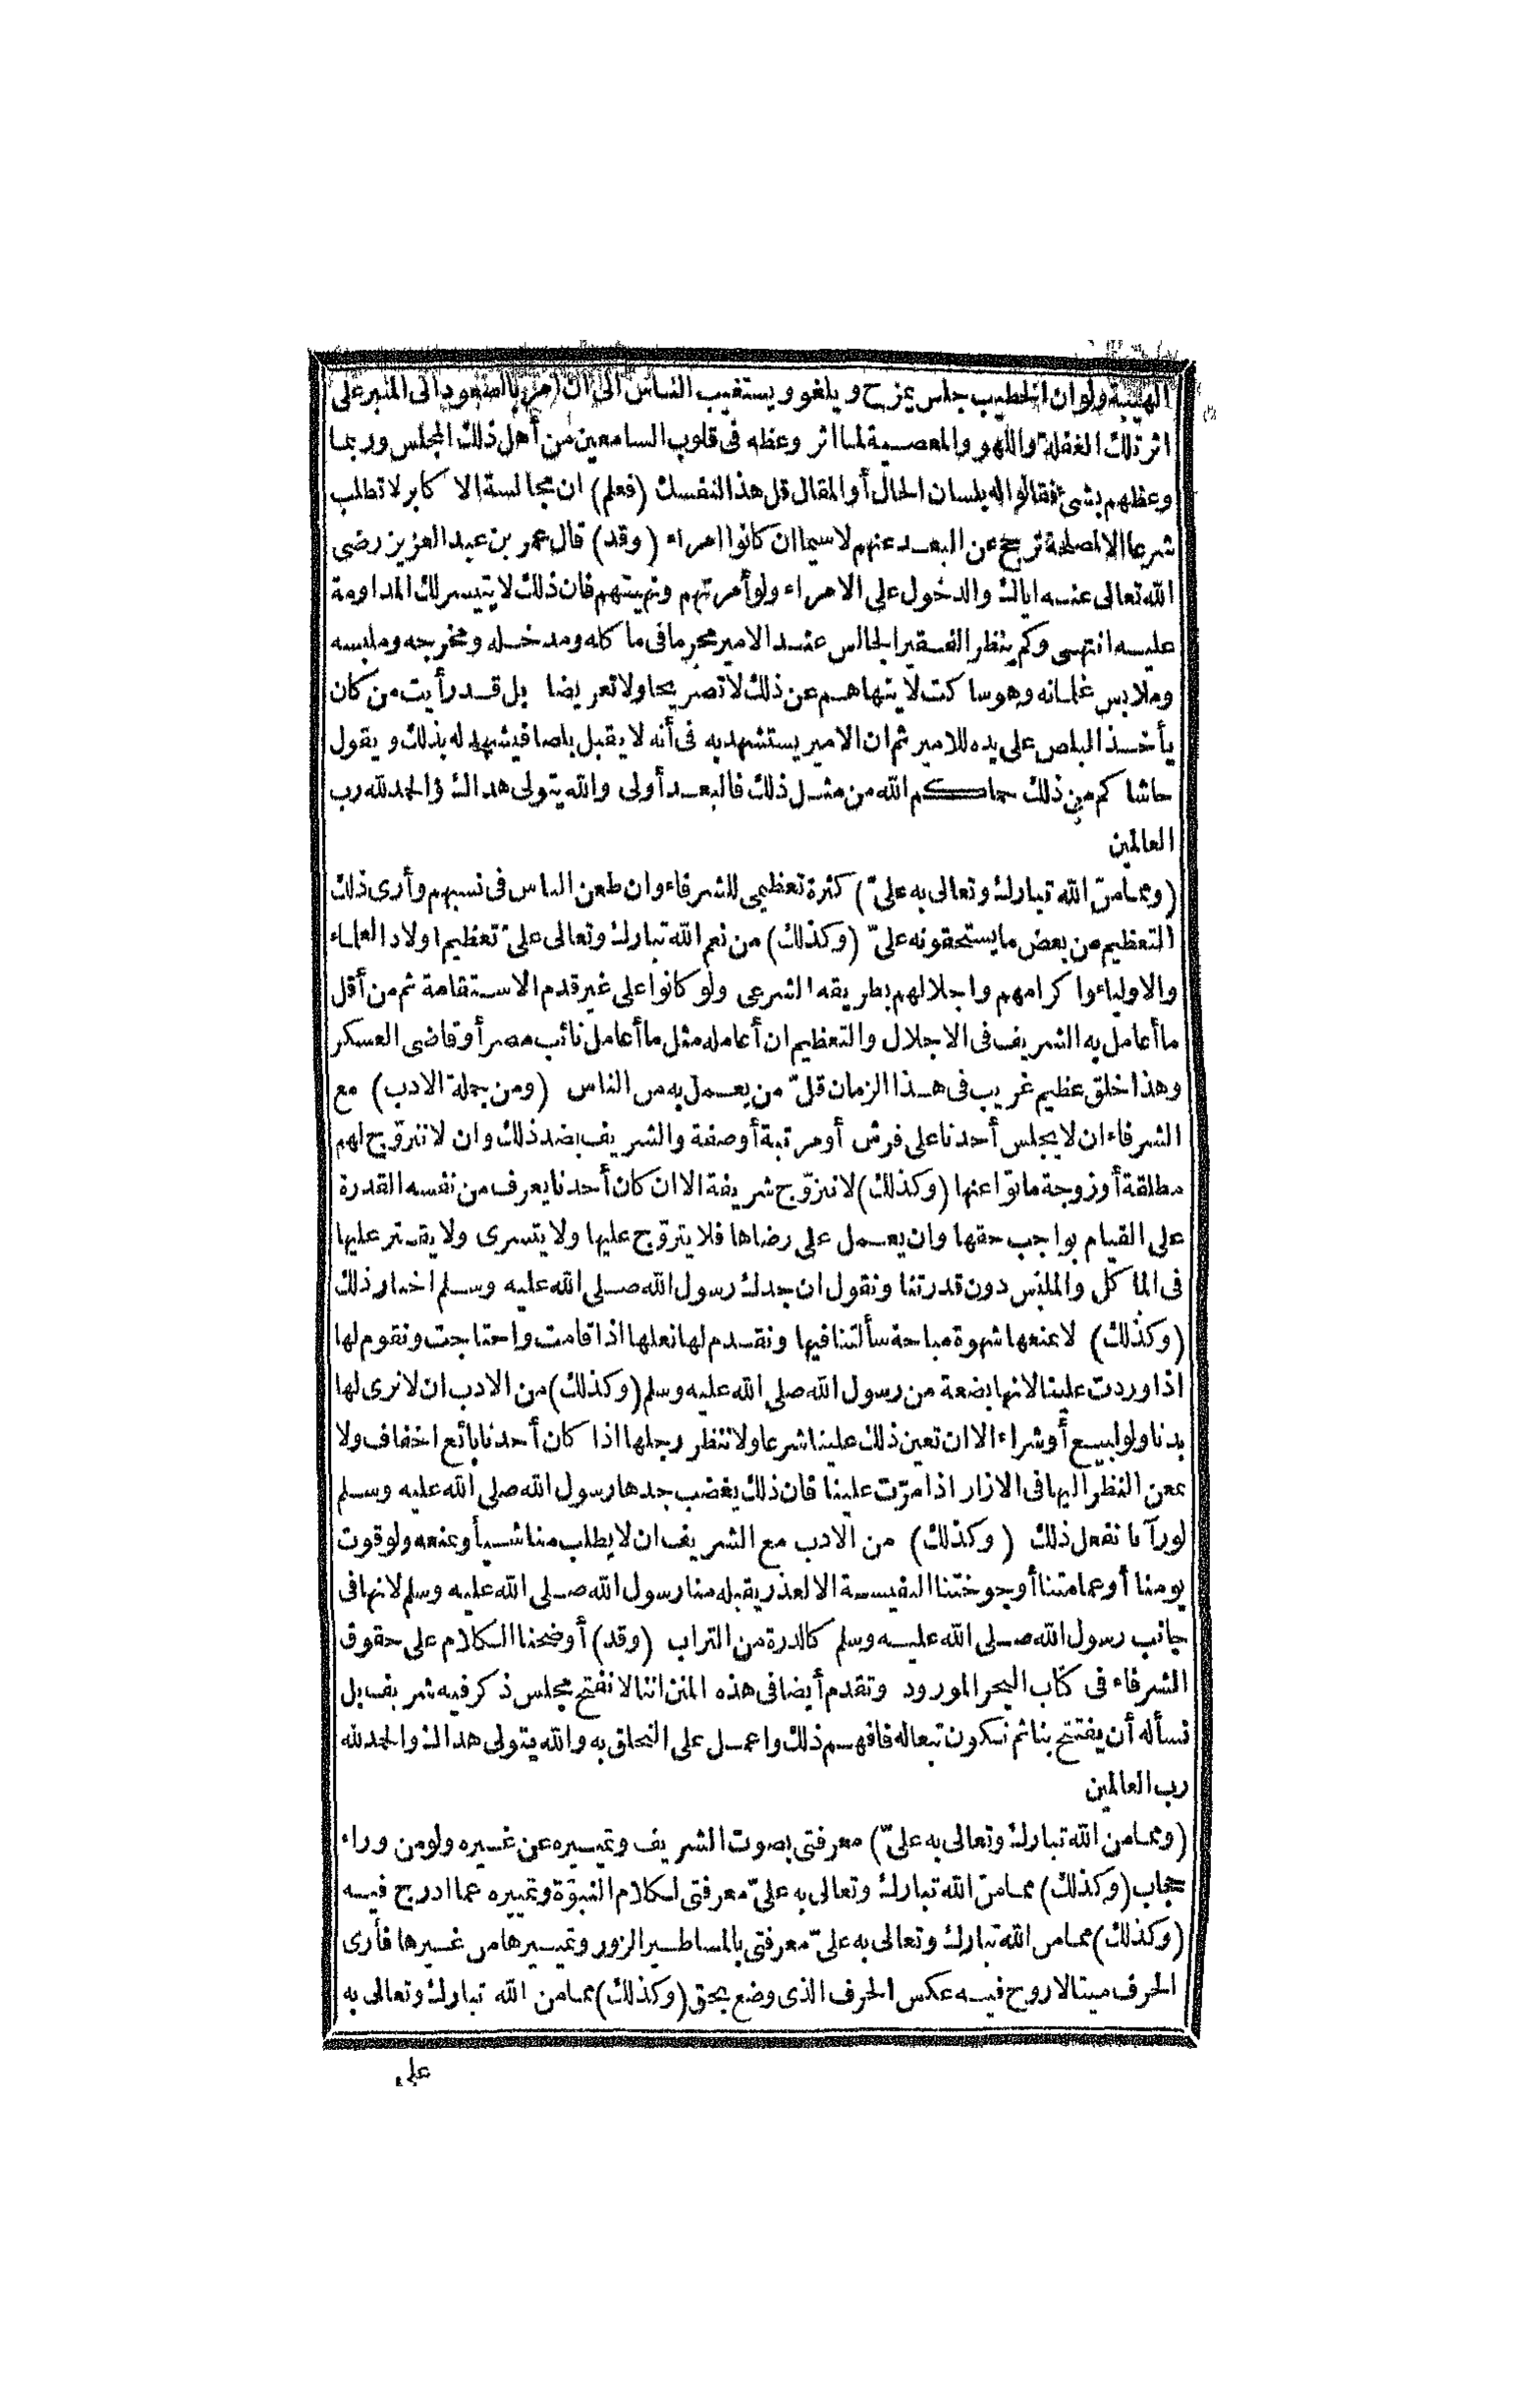 الهيبة ولو ان الخطيب جلس يمزح ويلغو ويستغيب الناس الى ان أمر بالصعود الى المنبر على
اثر تلك الغفلة واللهو والمعصية لما اثر وعظه فى قلوب السامعين من أهل ذلك المجلس وربما
وعظهم بشئ فقالوا له بلسان الحال أو المقال قل هذا لنفسك (فعلم) ان مجالسة الاكابر لا تطلب
شرعا الا لمصلحة ترجح عن البعد عنهم لا سيما ان كانوا امراء (وقد) قال عمر بن عبد العزيز رضى
الله تعالى عنه اياك والدخول على الامراء ولو أمرتهم ونهيتهم فان ذلك لا يتيسر لك المداومة
عليه انتهى وكم ينظر الفقير الجالس عند الامير محرما فى ماكله ومدخله ومخرجه وملبسه
وملابس غلمانه وهو ساكت لا ينهاهم عن ذلك لا تصريحا ولا تعريضا بل قد رأيت من كان
يأخذ البلص على يده للامير ثم ان الامير يستشهد به فى أنه لا يقبل بلصا فيشهد له بذلك ويقول
حاشاكم من ذلك حماكم الله من مثل ذلك فالبعد أولى والله يتولى هداك والحمد لله رب
العالمين
(ومما منّ الله تبارك وتعالى به علىّ) كثرة تعظيمى للشرفاء وان طعن الناس فى نسبهم وأرى ذلك
التعظيم من بعض ما يستحقونه علىّ (وكذلك) من نعم الله تبارك وتعالى علىّ تعظيم اولاد العلماء
والاولياء واكرامهم واجلالهم بطريقه الشرعى ولو كانوا على غير قدم الاستقامة ثم من أقل
ما أعامل به الشريف فى الاجلال والتعظيم ان أعامله مثل ما أعامل نائب مصر أو قاضى العسكر
وهذا خلق عظيم غريب فى هذا الزمان قلّ من يعمل به من الناس (ومن جملة الادب) مع
الشرفاء ان لا يجلس أحدنا على فرش أو مرتبة أو صفة والشريف بضد ذلك وان لا نتزوّج لهم
مطلقة أو زوجة ماتوا عنها (وكذلك) لا نتزوّج شريفة الا ان كان أحدنا يعرف من نفسه القدرة
على القيام بواجب حقها وان يعمل على رضاها فلا يتزوّج عليها ولا يتسرى ولا يقتر عليها
فى الماكل والملبس دون قدرتنا ونقول ان جدك رسول الله صلى الله عليه وسلم اختار ذلك
(وكذلك) لا نمنعها شهوة مباحة سألتنا فيها ونقدم لها نعلها اذا قامت واحتاجت ونقوم لها
اذا وردت علينا لانها بضعة من رسول الله صلى الله عليه وسلم (وكذلك) من الادب ان لا نرى لها
بدنا ولو لبيع أو شراء الا ان تعين ذلك علينا شرعا ولا ننظر رجلها اذا كان أحدنا بائع اخفاف ولا
نمعن النظر اليها فى الازار اذا مرّت علينا فان ذلك يغضب جدها رسول الله صلى الله عليه وسلم
لو رآنا نفعل ذلك (وكذلك) من الادب مع الشريف ان لا يطلب منا شيأ ونمنعه ولو قوت
يومنا أو عمامتنا أو جوختنا النفيسة الا لعذر يقبله منا رسول الله صلى الله عليه وسلم لانها فى
جانب رسول الله صلى الله عليه وسلم كالذرة من التراب (وقد) أوضحنا الكلام على حقوق
الشرفاء فى كتاب البحر المورود وتقدم أيضا فى هذه المنن اننا لا نفتح مجلس ذكر فيه شريف بل
نسأله أن يفتتح بنا ثم نكون تبعا له فافهم ذلك واعمل على التخلق به والله يتولى هداك والحمد لله
رب العالمين
(ومما من الله تبارك وتعالى به علىّ) معرفتى بصوت الشريف وتمييزه عن غيره ولو من وراء
حجاب (وكذلك) مما منّ الله تبارك وتعالى به علىّ معرفتى لكلام النبوّة وتمييزه عما ادرج فيه
(وكذلك) مما من الله تبارك وتعالى به علىّ معرفتى بالمساطير الزور وتمييزها من غيرها فأرى
الحرف ميتا لا روح فيه عكس الحرف الذى وضع بحق (وكذلك) مما من الله تبارك وتعالى به
على